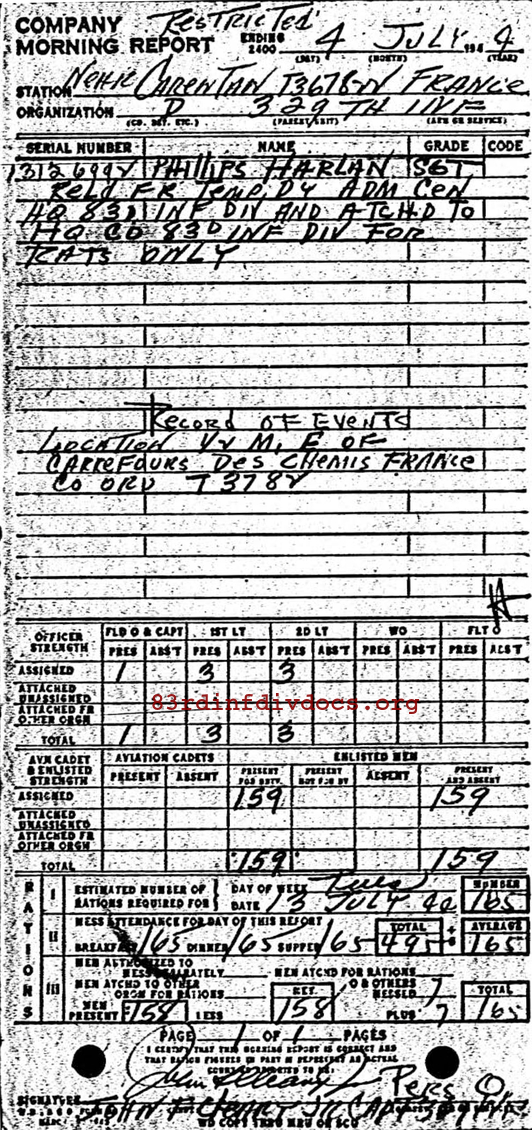 COMPANY Restricted
MORNING REPORT ENDING 2400 4 JULY 194 4
(DAY) (MONTH) (YEAR)
STATION CARENTAN T3678 FRANCE
ORGANIZATION D 329TH INF
(CO. DET. ETC.) (PARENT UNIT) (ARM OR SERVICE)
SERIAL NUMBER NAME GRADE CODE
PHILLIPS HARLAN SGT
Reld FR Temp Dy ADM Cen
HQ 83D INF DIV AND ATCHD To
HQ CO 83D INF DIV FOR
RATS ONLY
RECORD OF EVENTS
LOCATION M. E OF
CARREFOURS Des CHEMIS FRANCE
CO ORD T 378
OFFICER STRENGTH FLD O & CAPT 1ST LT 2D LT WO FLT O
PRES ABS'T PRES ABS'T PRES ABS'T PRES ABS'T PRES ABS'T
ASSIGNED 1 3 3
ATTACHED UNASSIGNED
83rdinfdivdocs.org
ATTACHED FR OTHER ORGN
TOTAL 1 3 3
AVN CADET & ENLISTED STRENGTH AVIATION CADETS ENLISTED MEN
PRESENT ABSENT PRESENT FOR DUTY PRESENT NOT FOR DY ABSENT PRESENT AND ABSENT
ASSIGNED 159 159
ATTACHED UNASSIGNED
ATTACHED FR OTHER ORGN
TOTAL 159 159
RATIONS
I ESTIMATED NUMBER OF RATIONS REQUIRED FOR DAY OF WEEK Tues NUMBER
DATE JULY 165
II MESS ATTENDANCE FOR DAY OF THIS REPORT TOTAL AVERAGE
BREAKFAST 165 DINNER 165 SUPPER 165 495 ÷ 3 165
III MEN AUTHORIZED TO MESS SEPARATELY MEN ATCHD FOR RATIONS
MEN ATCHD TO OTHER ORGN FOR RATIONS NET O & OTHERS MESSED 7 TOTAL
MEN PRESENT 158 LESS 158 PLUS 7 165
PAGE 1 OF 1 PAGES
I CERTIFY THAT THIS MORNING REPORT IS CORRECT AND
THAT RATION FIGURES IN PART III REPRESENT AN ACTUAL
Pers O
SIGNATURE
JOHN F JR CAPT